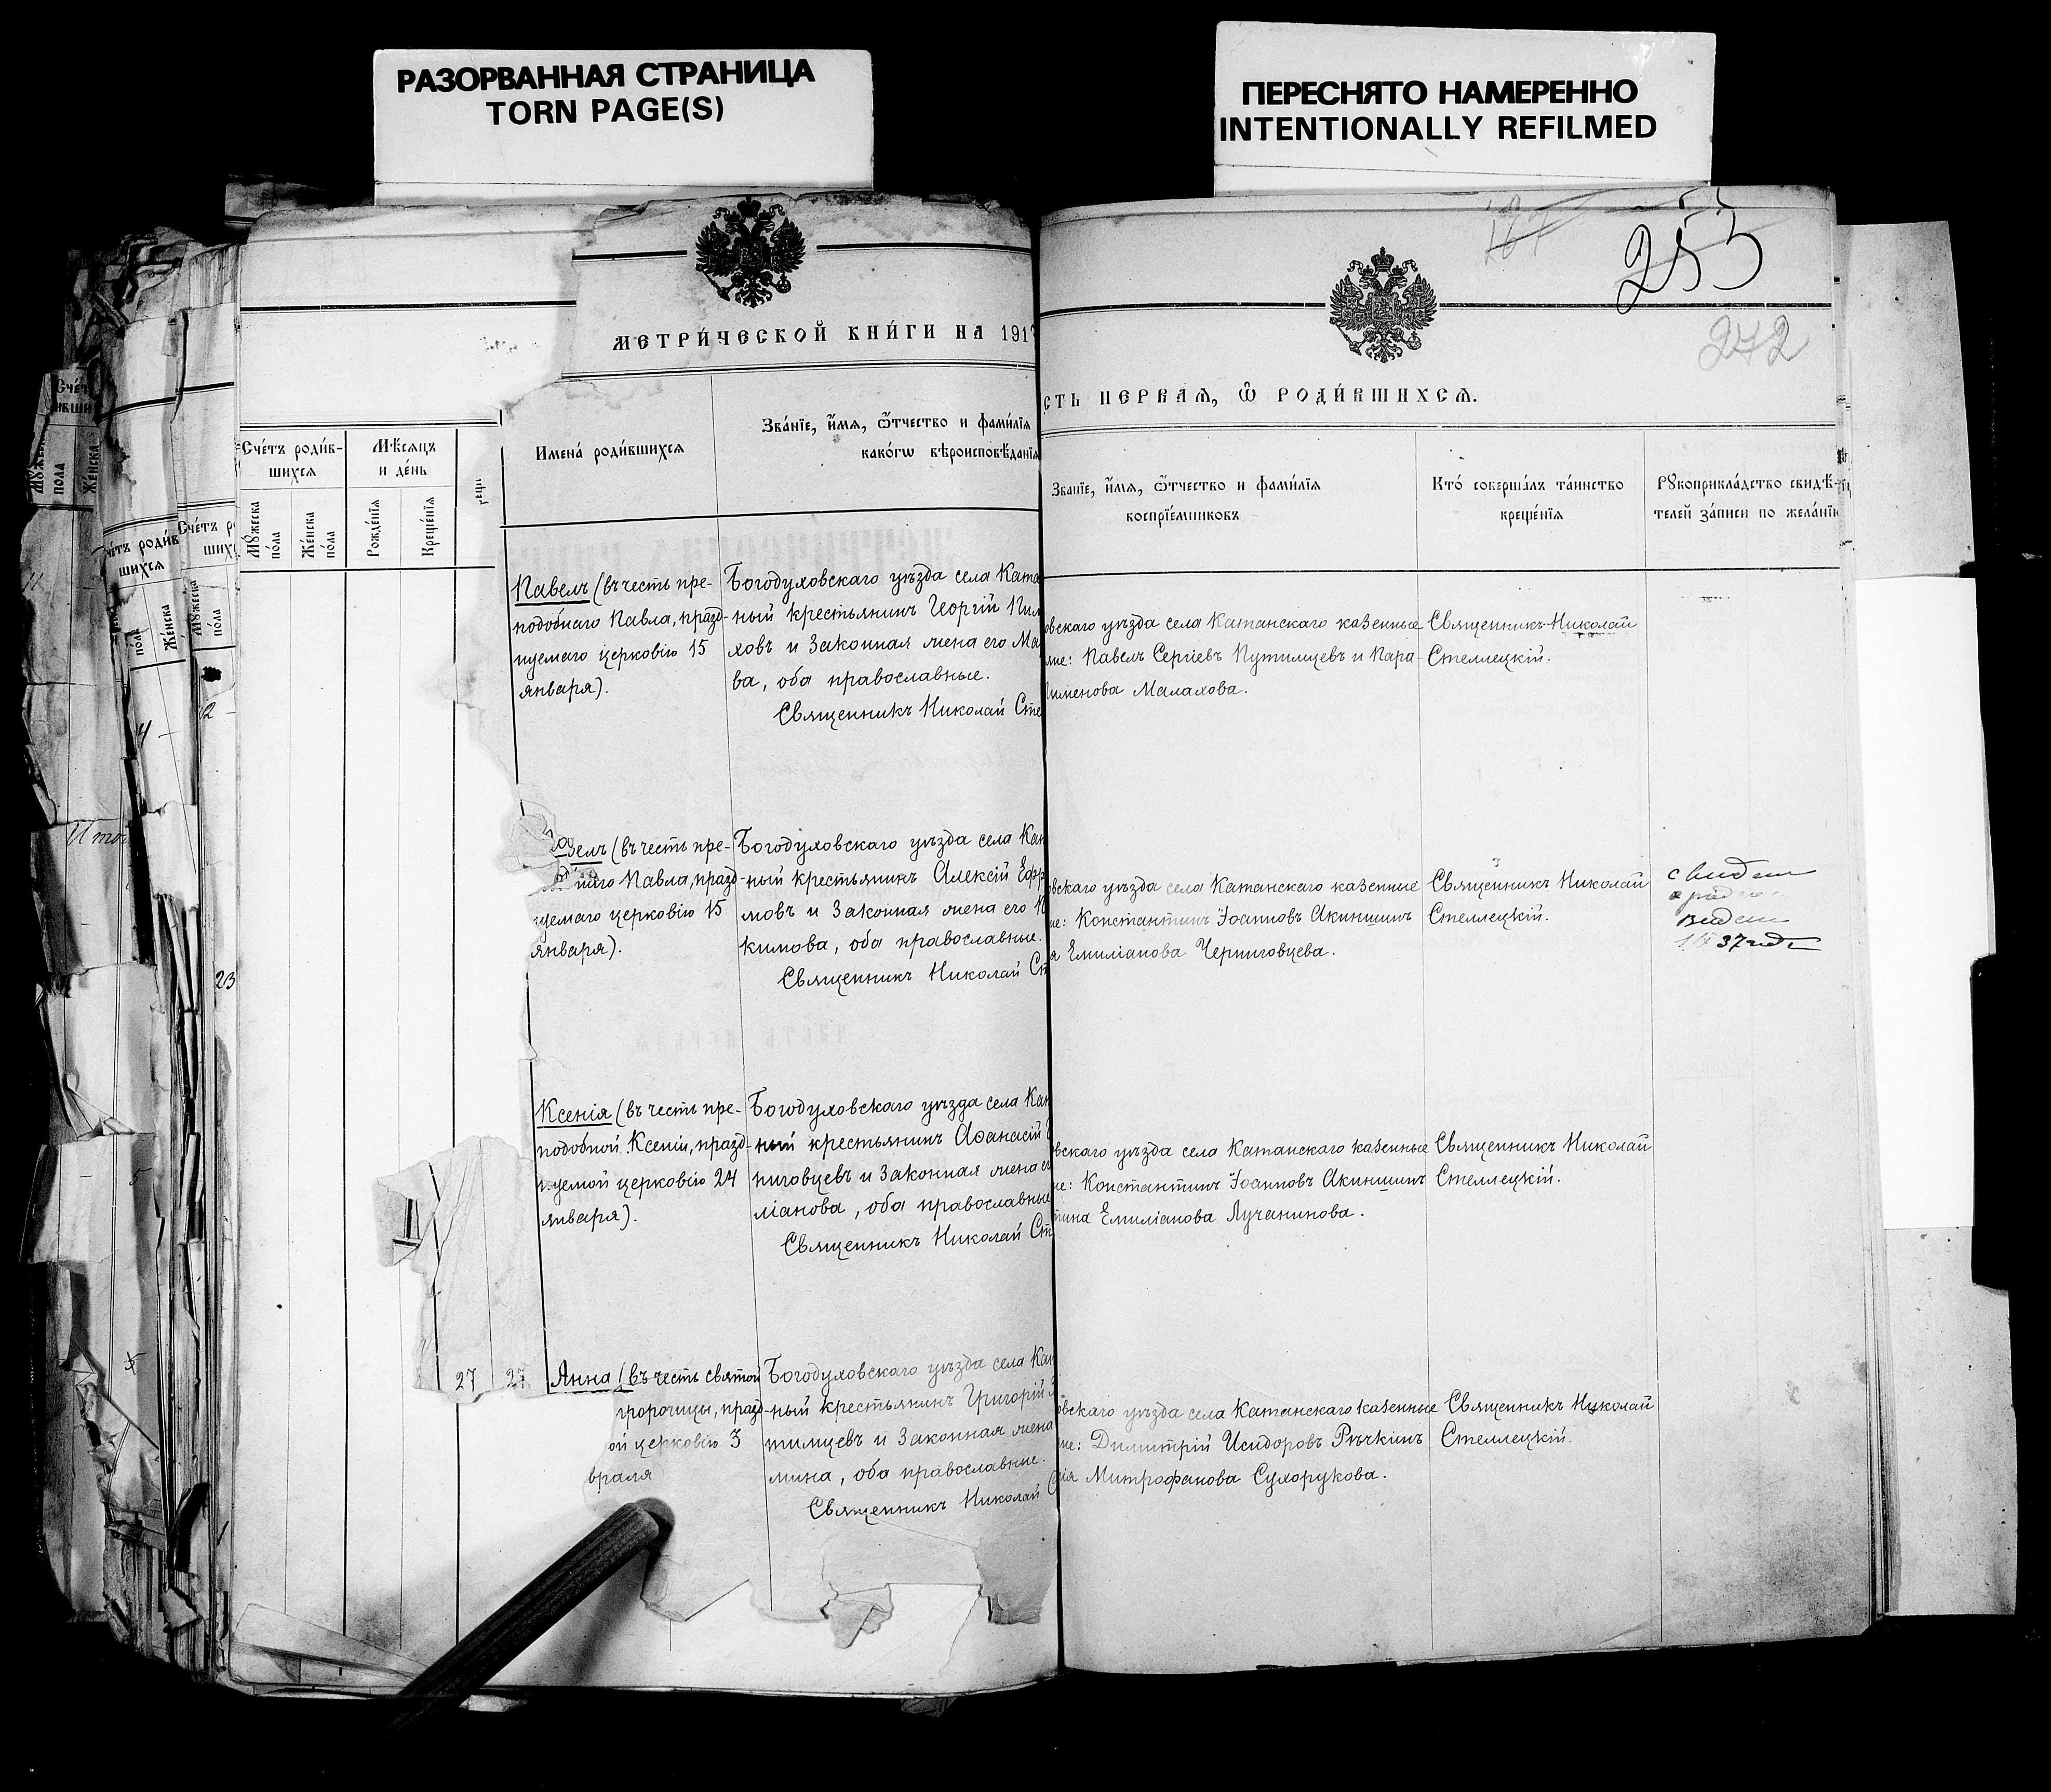 РАЗОРВАННАЯ СТРАНИЦА
TORN PAGE(S)
ПЕРЕСНЯТО НАМЕРЕННО
INTENTIONALLY REFILMED
253
272
МЕТРИ́ЧЕСКОЙ КНИ́ГИ НА 191
СТЬ ПЕРВАѦ, Ѿ РОДИ́ВШИХСѦ.
Сче́тъ роди́в-
шихсѧ
Мѣ́сѧцъ
и де́нь
Мꙋ́жеска
по́ла
Же́нска
по́ла
Рожде́нїѧ
Креще́нїѧ
Имена̀ роди́вшихсѧ
Зва́нїе, и҆́мѧ, ѻ҆́тчество и фами́лїѧ
како́гѡ вѣроисповѣ́данїѧ
Зва́нїе, и҆́мѧ, ѻ҆́тчество и фами́лїѧ
воспрїе́мниковъ
Кто̀ соверша́лъ та́инство
креще́нїѧ
Рꙋкоприкла́дство свидѣ́-
телей за́писи по жела́нїю
Павелъ (въ честь пре-
подобнаго Павла, празд-
нуемаго церковію 15
января).
Богодуховскаго уѣзда села Ката
ный крестьянинъ Георгій Пим
ховъ и законная жена его Ма
ва, оба православные.
Священникъ Николай Сте
овскаго уѣзда села Катанскаго казенные
ане: Павелъ Сергіевъ Путимцевъ и Пара-
Пименова Малахова.
Священникъ Николай
Стеллецкій.
Павелъ (въ честь пре-
наго Павла, празд-
уемаго церковію 15
января).
Богодуховскаго уѣзда села Кат
ный крестьянинъ Алексій Ефр
мовъ и законная жена его
кимова, оба православные.
Священникъ Николай Ст
овскаго уѣзда села Катанскаго казенные
не: Константинъ Іоанновъ Акиншинъ
я Емиліанова Черниговцева.
Священникъ Николай
Стеллецкій.
37
Ксенія (въ честь пре-
подобной Ксеніи, празд-
нуемой церковію 24
января).
Богодуховскаго уѣзда села Кат
ный крестьянинъ Аѳанасій
ниговцевъ и законная жена ег
ліанова, оба православные
Священникъ Николай Ст
овскаго уѣзда села Катанскаго казенные
не: Константинъ Іоанновъ Акиншинъ
тина Емиліанова Лучанинова.
Священникъ Николай
Стеллецкій.
27 27
Анна (въ честь святой
пророчицы, празд-
ой церковію 3
враля
Богодуховскаго уѣзда села Кат
ный крестьянинъ Григорій
тимцевъ и законная жена
мина, оба православные.
Священникъ Николай С
овскаго уѣзда села Катанскаго казенные
не: Димитрій Исидоровъ Рѣчкинъ
ія Митрофанова Сухорукова.
Священникъ Николай
Стеллецкій.